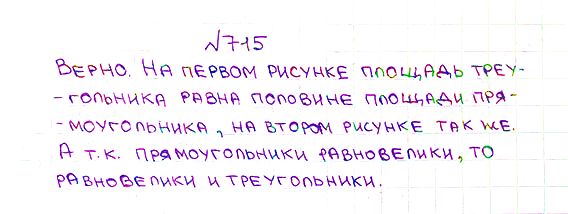 №715
Верно. На первом рисунке площадь треу-
-гольника равна половине площади пря-
-моугольника, на втором рисунке так же.
А т.к. прямоугольники равновелики, то
равновелики и треугольники.